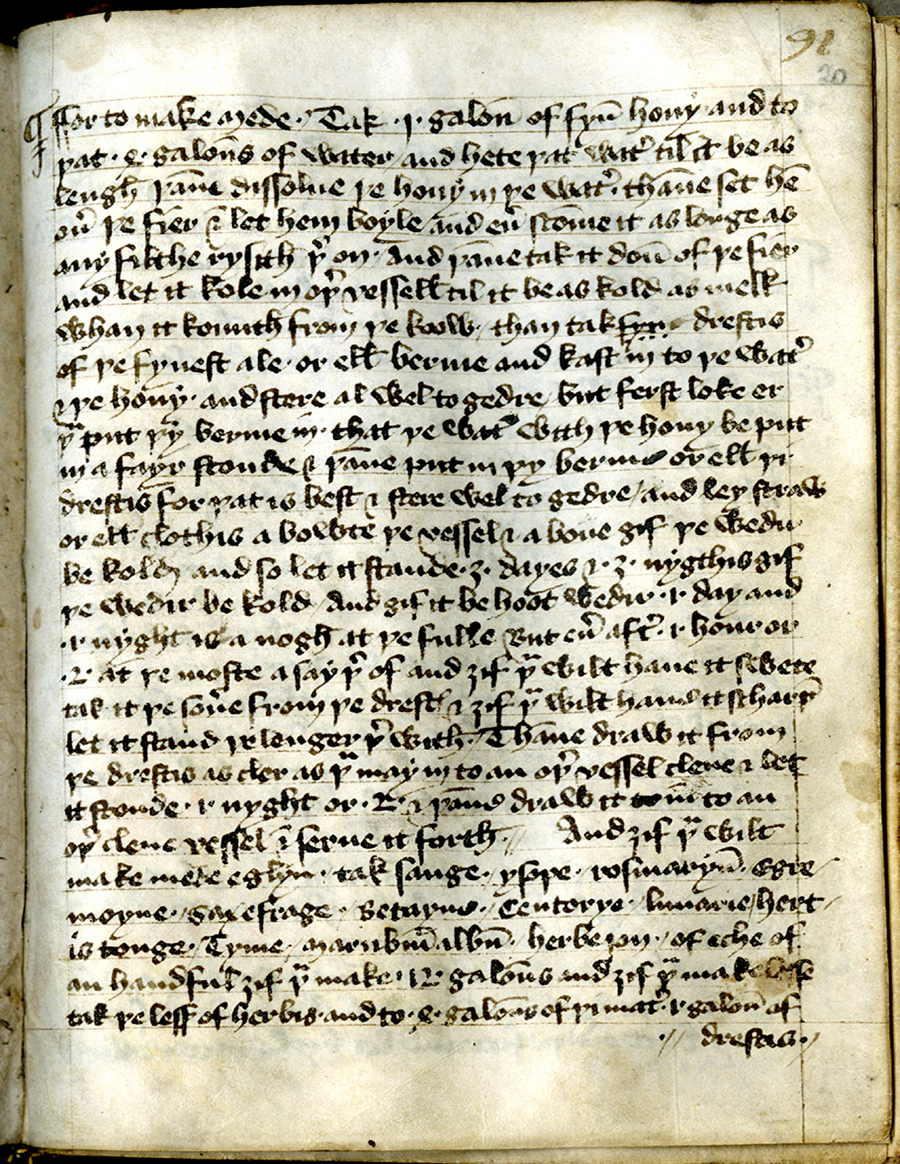 91
20
ffor to make mede. Tak .1. galoñ of fyñ hony and to
þat .4. galoñs of water and hete þat watʳ til it be as
lengh þañe dissolue þe hony in þe watʳ. thañe set hē
ouʳ þe fier & let hem boyle and euʳ scome it as longe as
any filthe rysith þʳ on. And þañe tak it douñ of þe fier
and let it kole in oþʳ vessell til it be as kold as melk
whan it komith from þe koow. than tak drestis
of þe fynest ale or ell berme and kast in to þe watʳ
& þe hony. and stere al wel to gedre. but ferst loke er
þᵘ put þy berme in. that þe watʳ with þe hony be put
in a fayr stonde & þañe put in þy berme or ell þi
drestis for þat is best & stere wel to gedre / and ley straw
or ell clothis a bowte þe vessel & a boue gif þe wedir
be kold and so let it stande .3. dayes & .3. nygthis gif
þe wedir be kold And gif it be hoot wedir .1. day and
.1. nyght is a nogh at þe fulle But euʳ aftʳ .1. hour or
.2. at þe moste a say þʳ of and zif þᵘ wilt haue it swete
tak it þe soñe from þe drest & zif þᵘ wilt haue it scharpʳ
let it stand þe lenger þʳ with. Thañe draw it from
þe drestis as cler as þᵘ may in to an oþʳ vessel clene & let
it stonde .1. nyght or .2. & þañe draw it in to an
oþʳ clene vessel & serue it forth. // And zif þᵘ wilt
make mede eglyn. tak sauge. ysope. rosmaryñ. Egre
moyne. / Saxefrage. Betayne. / Centorye. lunarie / hert
is tonge. Tyme. marubiū albū. herbe jon. / of eche of
an handful zif þᵘ make .12. galoñs and zif þᵘ mak lesse
tak þe less of herbis. and to .4. galoñs of þi matʳ .1. galoñ of
// drestis. //